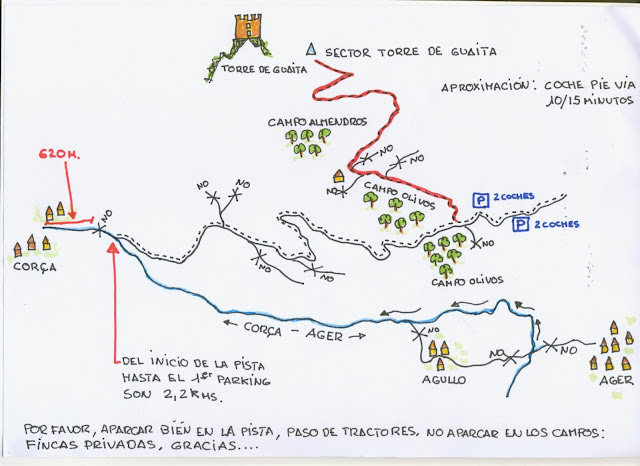 TORRE DE GUAITA
SECTOR TORRE DE GUAITA
APROXIMACIÓN: COCHE PIE VIA
10/15 MINUTOS
CAMPO ALMENDROS
620 M.
NO
NO
NO
CAMPO OLIVOS
P 2 COCHES
P 2 COCHES
NO
NO
NO
NO
NO
NO
NO
CORÇA
CAMPO OLIVOS
← CORÇA - AGER →
NO
NO
NO
AGULLO
AGER
DEL INICIO DE LA PISTA
HASTA EL 1er PARKING
SON 2,2 KMS.
POR FAVOR, APARCAR BIÉN EN LA PISTA, PASO DE TRACTORES. NO APARCAR EN LOS CAMPOS:
FINCAS PRIVADAS, GRACIAS....